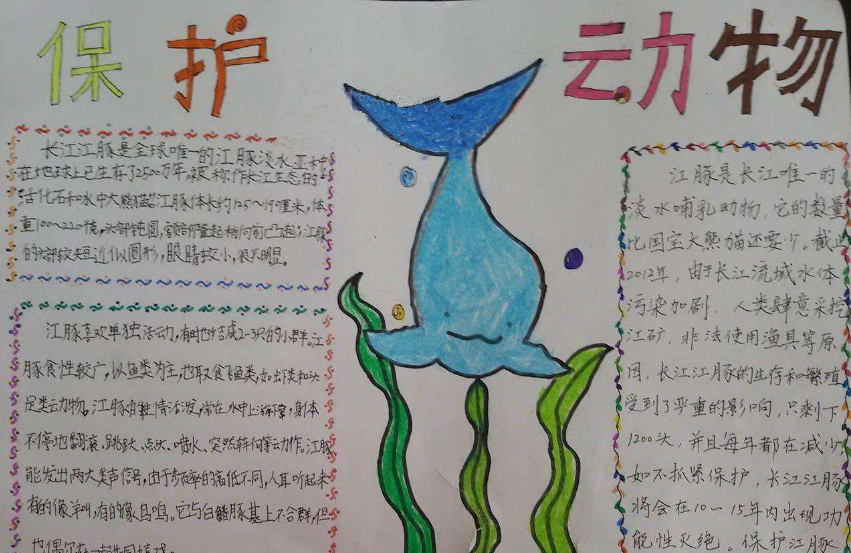 保护动物
长江江豚是全球唯一的江豚淡水亚种
在地球上已生存了2500万年,被称作长江生态的
活化石和水中大熊猫,江豚体长约120~190厘米,体
重100~220千克,头部钝圆,额部隆起稍向前凸起;江豚
的头部较短近似圆形,眼睛较小,很不明显。
江豚喜欢单独活动,有时也结成2-3只的小群。江
豚食性较广,以鱼类为主,也取食虾类和头
足类动物。江豚性情活泼,常在水中上游下窜,身体
不停地翻滚、跳跃、点头、喷水、突然转向等动作。江豚
能发出两大类声信号,由于频率的高低不同,人耳听起来
有的像羊叫,有的像鸟鸣。它与白鳍豚基本上不合群,但
也偶尔在一起
江豚是长江唯一的
淡水哺乳动物,它的数量
比国宝大熊猫还要少。截止
2012年,由于长江流域水体
污染加剧,人类肆意采挖
江矿,非法使用渔具等原
因,长江江豚的生存和繁殖
受到了严重的影响,只剩下
1200头,并且每年都在减少
如不抓紧保护,长江江豚
将会在10-15年内出现功
能性灭绝。保护江豚